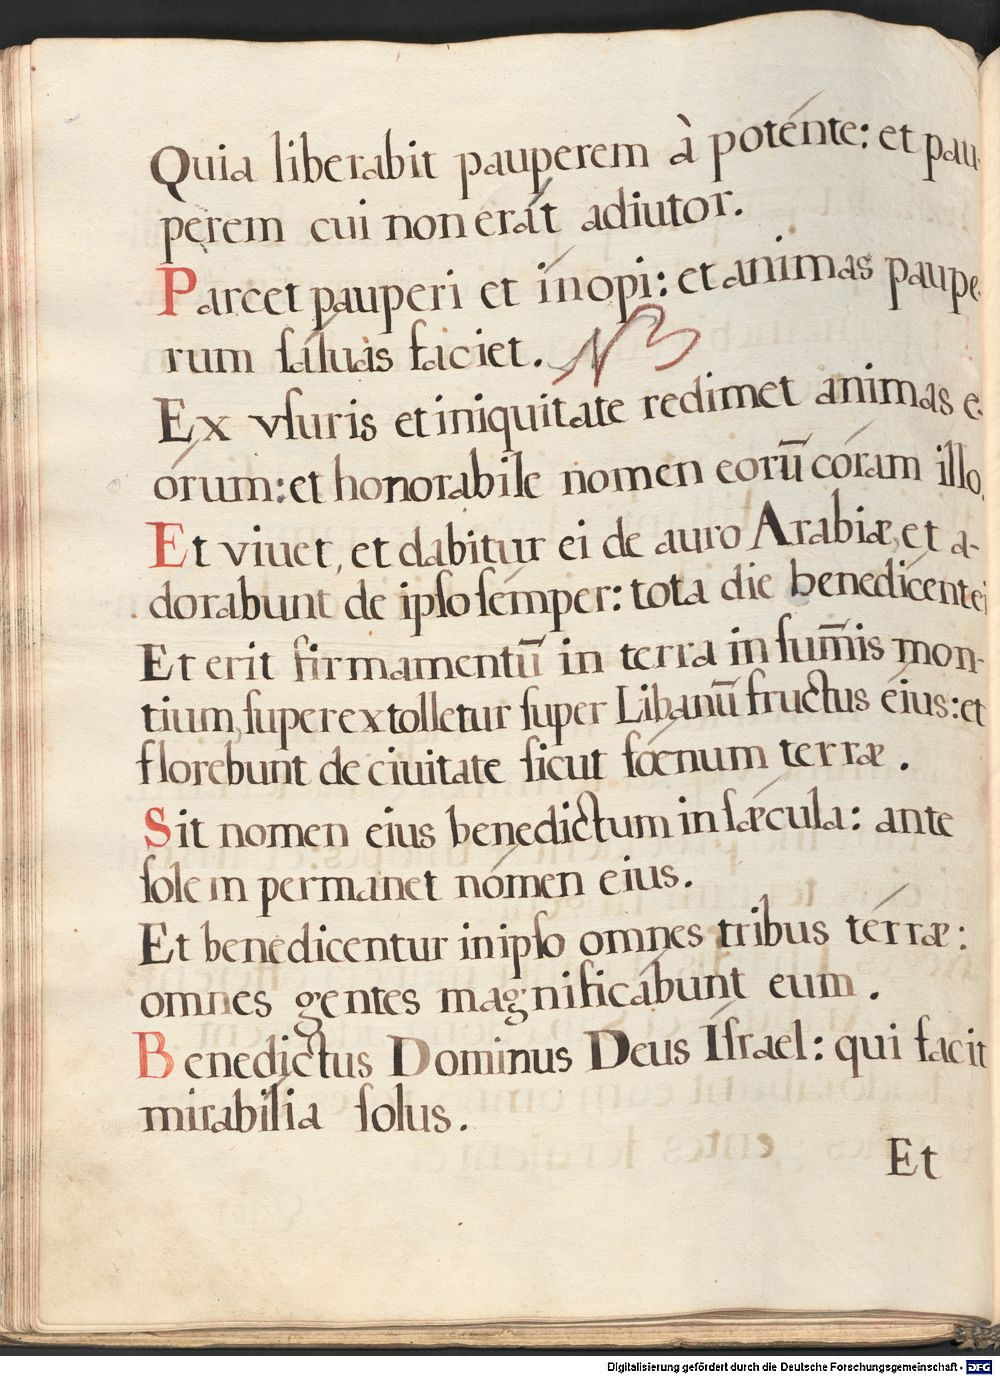 Quia liberabit pauperem à poténte: et pau-
perem cui non erát adiutor.
Parcet pauperi et ínopi: et animas paupe-
rum sáluas faciet. NB
Ex vſuris et iniquitate redimet animas e-
órum: et honorabile nomen eorū córam illo.
Et viuet, et dabitur ei de auro Arabiæ, et a-
dorabunt de ipſo ſémper: tota die benedícent ei
Et erit firmamentū in terra in ſum̄is món-
tium, ſuperextolletur ſuper Libánū fructus eius: et
florebunt de ciuitate ſicut fœ́num terræ.
Sit nomen eius benedictum in ſǽcula: ante
ſolem permanet nómen eius.
Et benedicentur in ipſo omnes tribus térræ:
omnes gentes magnificábunt eum.
Benedictus Dominus Deus Íſrael: qui facit
mirabília ſolus.
Et
Digitalisierung gefördert durch die Deutsche Forschungsgemeinschaft - DFG